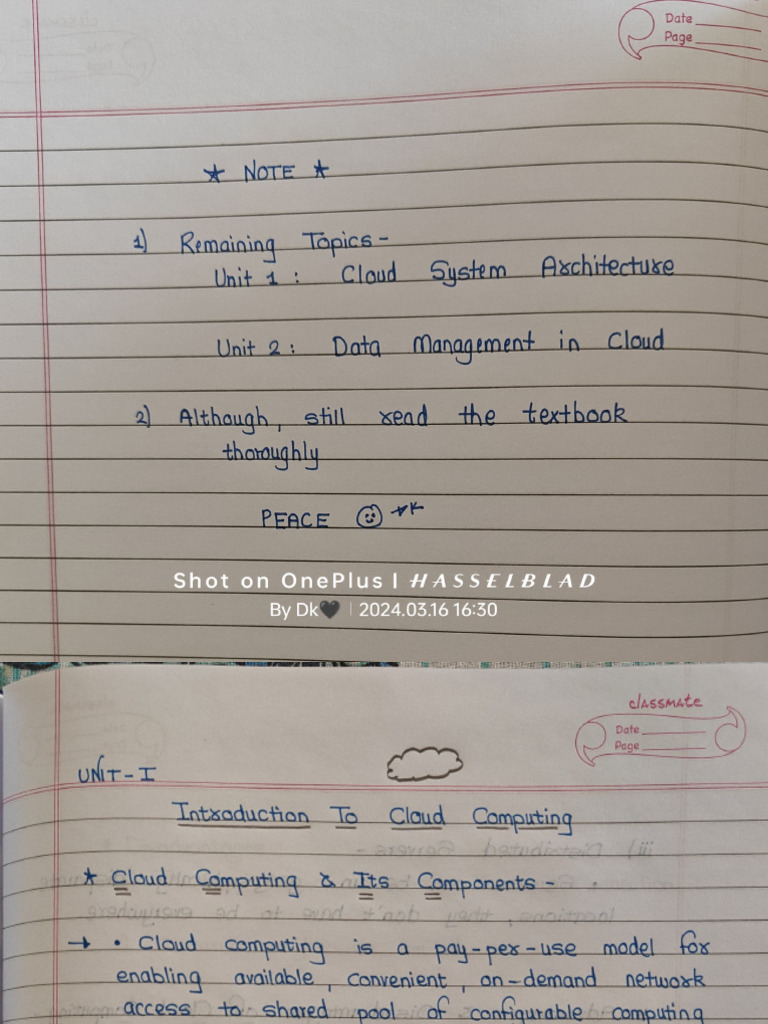 Date
Page
★ NOTE ★
1) Remaining Topics-
Unit 1 : Cloud System Architecture
Unit 2 : Data Management in Cloud
2) Although, still read the textbook
thoroughly
PEACE ☺
Shot on OnePlus | HASSELBLAD
By Dk🖤 | 2024.03.16 16:30
classmate
Date
Page
UNIT-I
Introduction To Cloud Computing
★ Cloud Computing & Its Components -
→ • Cloud computing is a pay-per-use model for
enabling available, convenient, on-demand network
access to shared pool of configurable computing